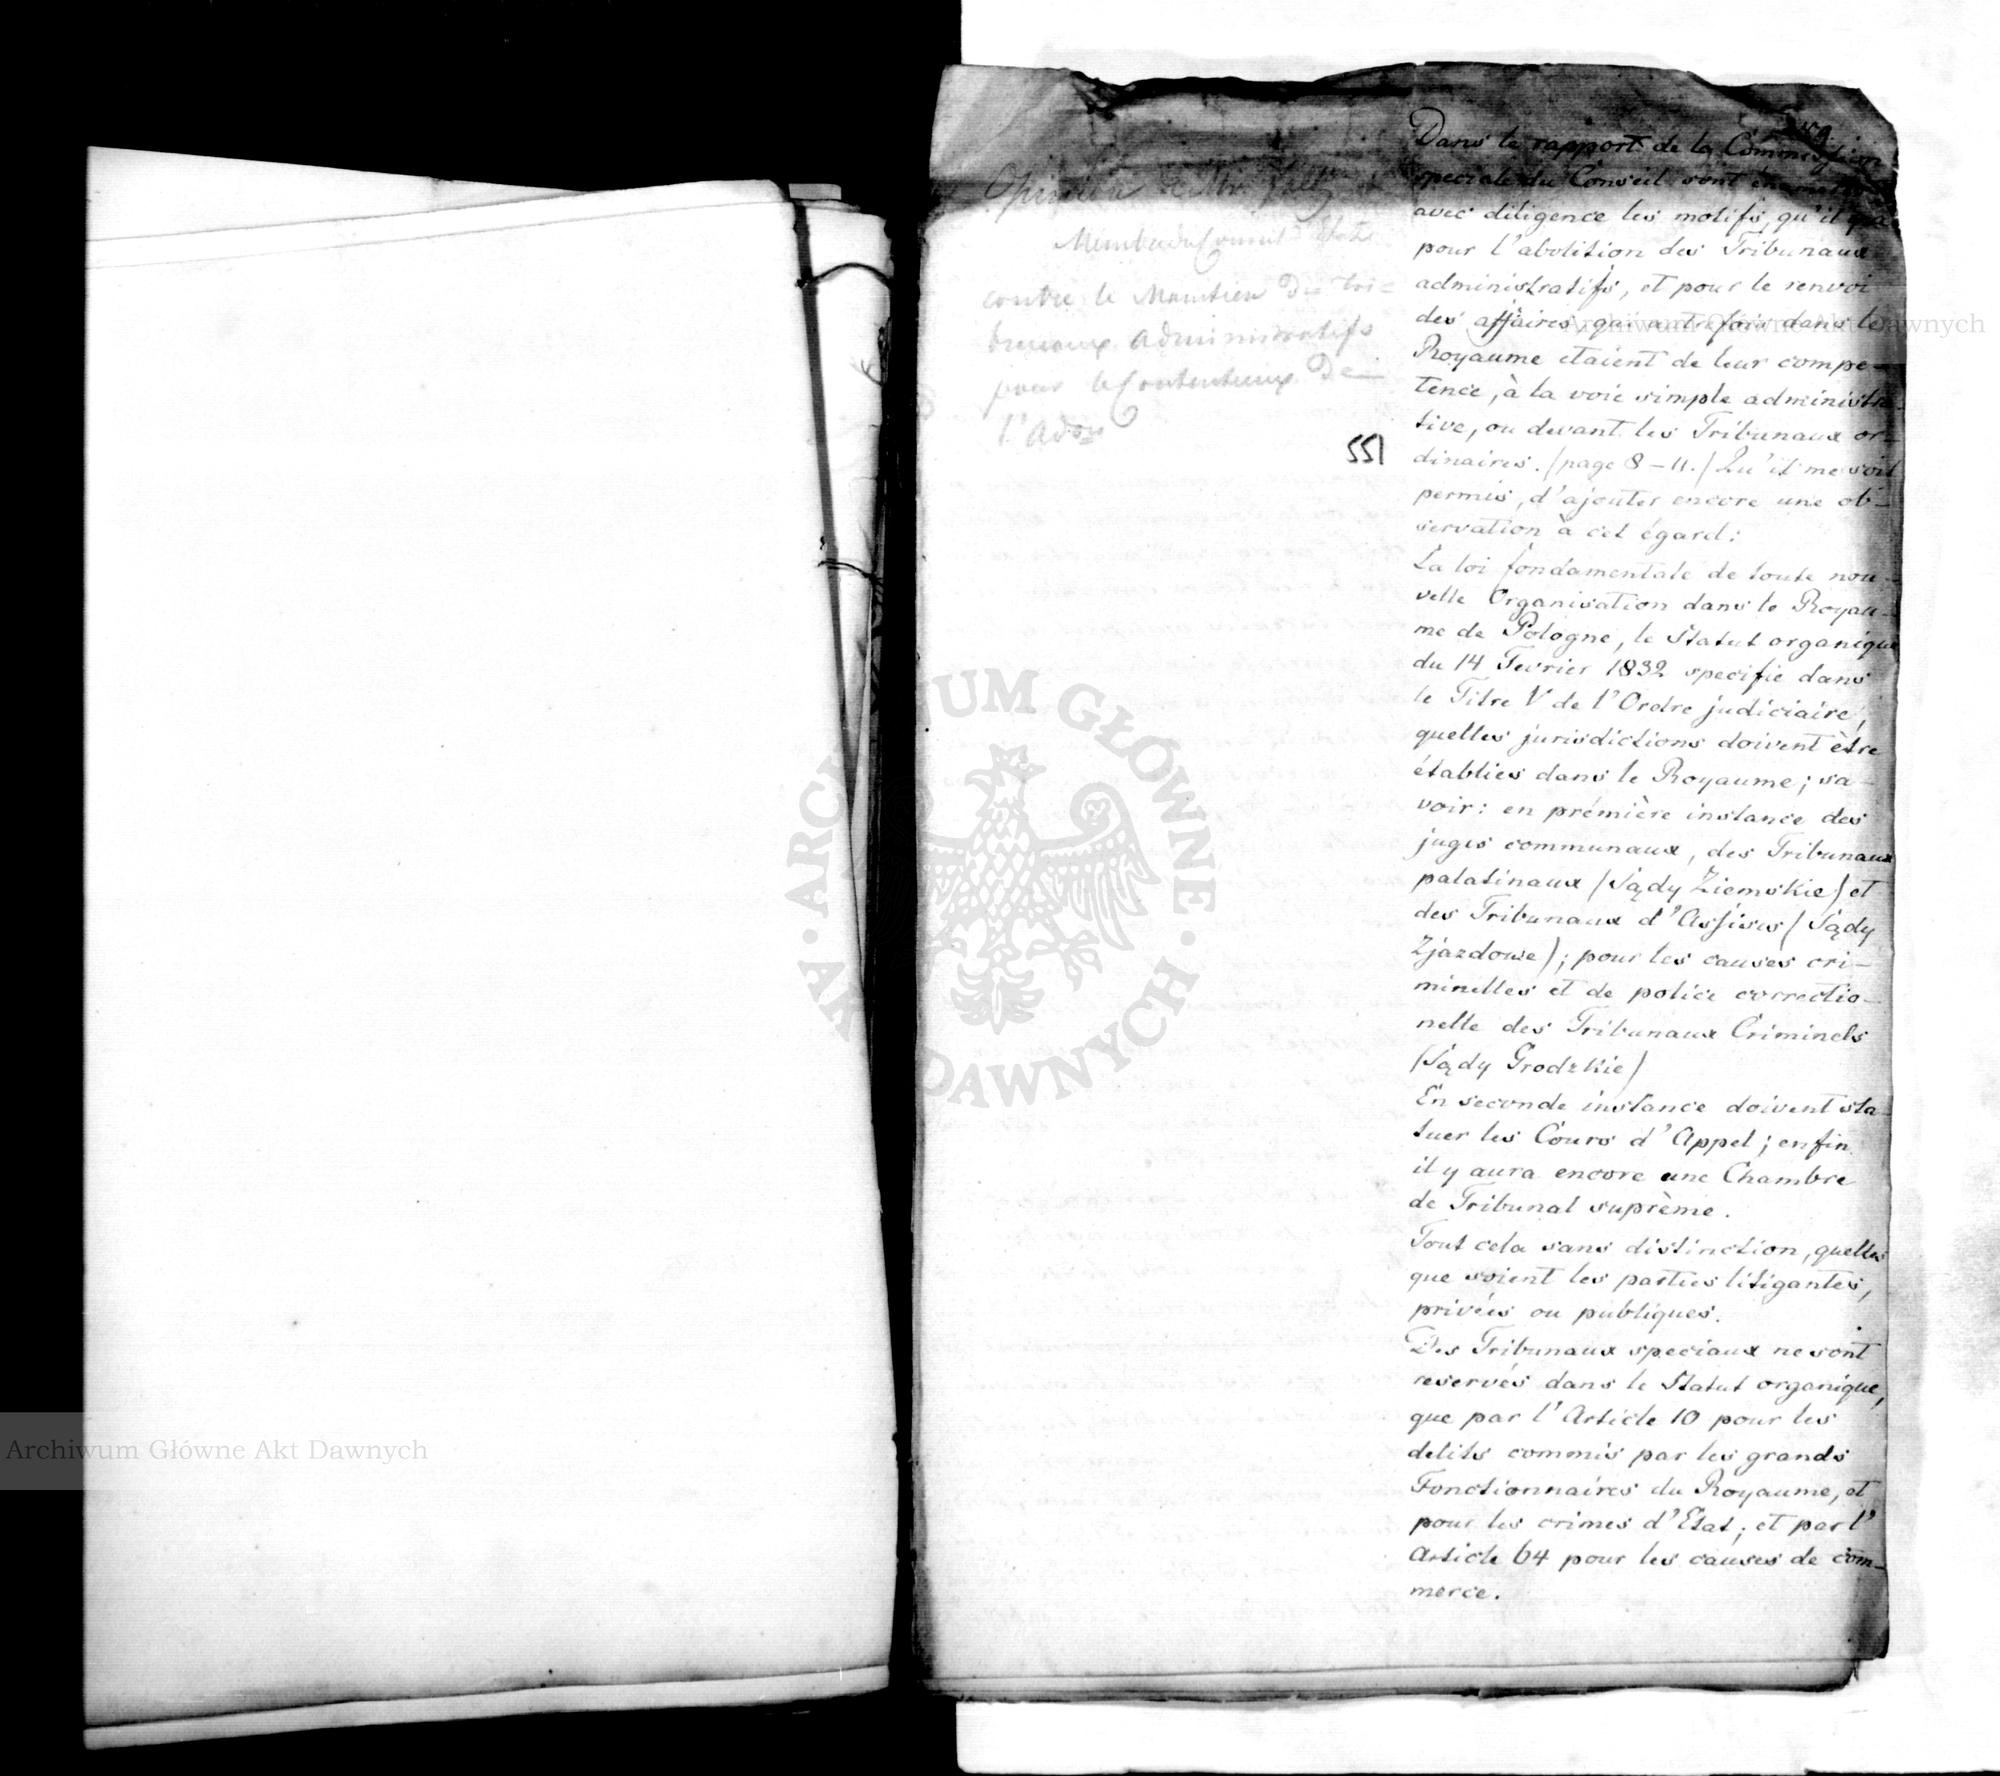 Opinion de Mr.
Membre du Conseil d'Etat
contre le Maintien des Tri=
bunaux administratifs
pour le Contentieux de
l'Adon
551
Dans le rapport de la Commission
speciale du Conseil sont
avec diligence les motifs, qu'il y a
pour l'abolition des Tribunaux
administratifs, et pour le renvoi
des affaires qui autrefois dans le
Royaume etaient de leur compe-
tence, à la voie simple administra-
tive, ou devant les Tribunaux or-
dinaires. (page 8-11.) Qu'il me soit
permis, d'ajouter encore une ob-
servation à cet égard:
La loi fondamentale de toute nou-
velle Organisation dans le Royau-
me de Pologne, le Statut organique
du 14 Fevrier 1832 specifie dans
le Titre V de l'Ordre judiciaire,
quelles jurisdictions doivent être
établies dans le Royaume; sa-
voir: en prémière instance des
juges communaux, des Tribunaux
palatinaux (Sądy Ziemskie) et
des Tribunaux d'Assises (Sądy
Zjazdowe); pour les causes cri-
minelles et de police correctio-
nelle des Tribunaux Criminels
(Sądy Grodzkie)
En seconde instance doivent sta-
tuer les Cours d'Appel; enfin
il y aura encore une Chambre
de Tribunal suprème.
Tout cela sans distinction, quelles
que soient les parties litigantes,
privées ou publiques.
Des Tribunaux speciaux ne sont
reservés dans le Statut organique,
que par l'Article 10 pour les
delits commis par les grands
Fonctionnaires du Royaume, et
pour les crimes d'Etat; et par l'
Article 64 pour les causes de com-
merce.
Archiwum Główne Akt Dawnych
Archiwum Główne Akt Dawnych
ARCHIWUM GŁÓWNE · AKT DAWNYCH ·